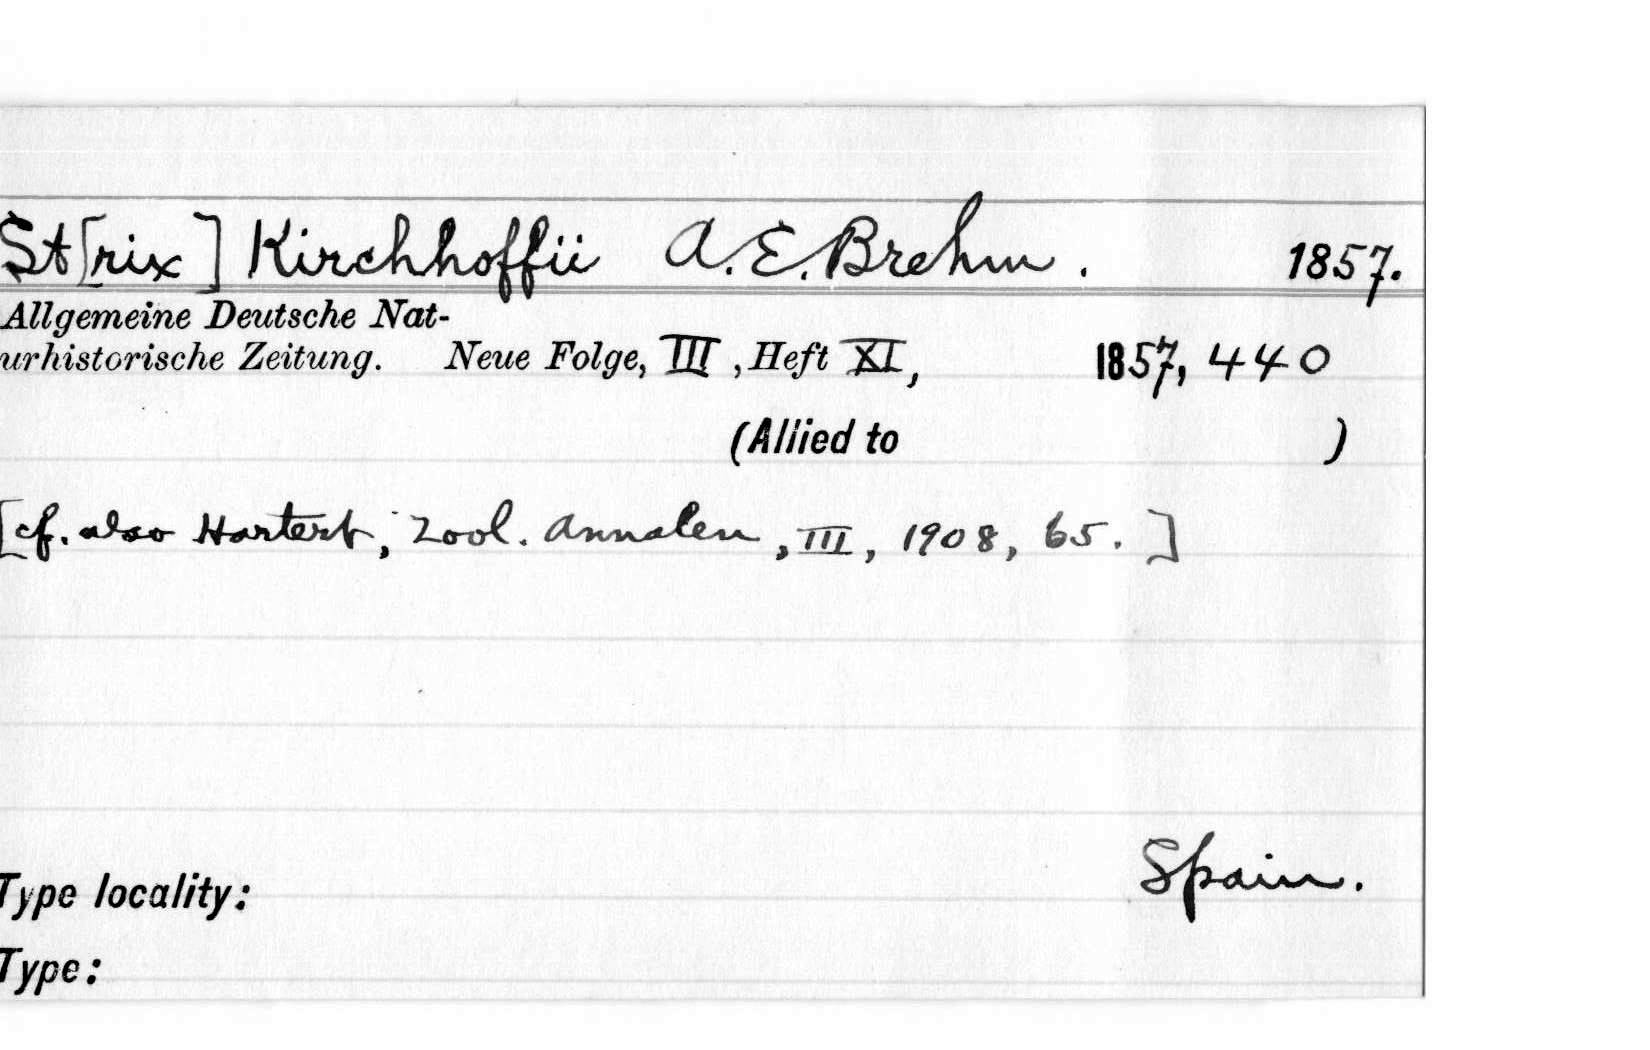 St[rix] Kirchhoffii A. E. Brehm. 1857.
Allgemeine Deutsche Nat-
urhistorische Zeitung. Neue Folge, III, Heft XI, 1857, 440
(Allied to )
[cf. also Hartert, Zool. Annalen, III, 1908, 65.]
Spain.
Type locality:
Type: